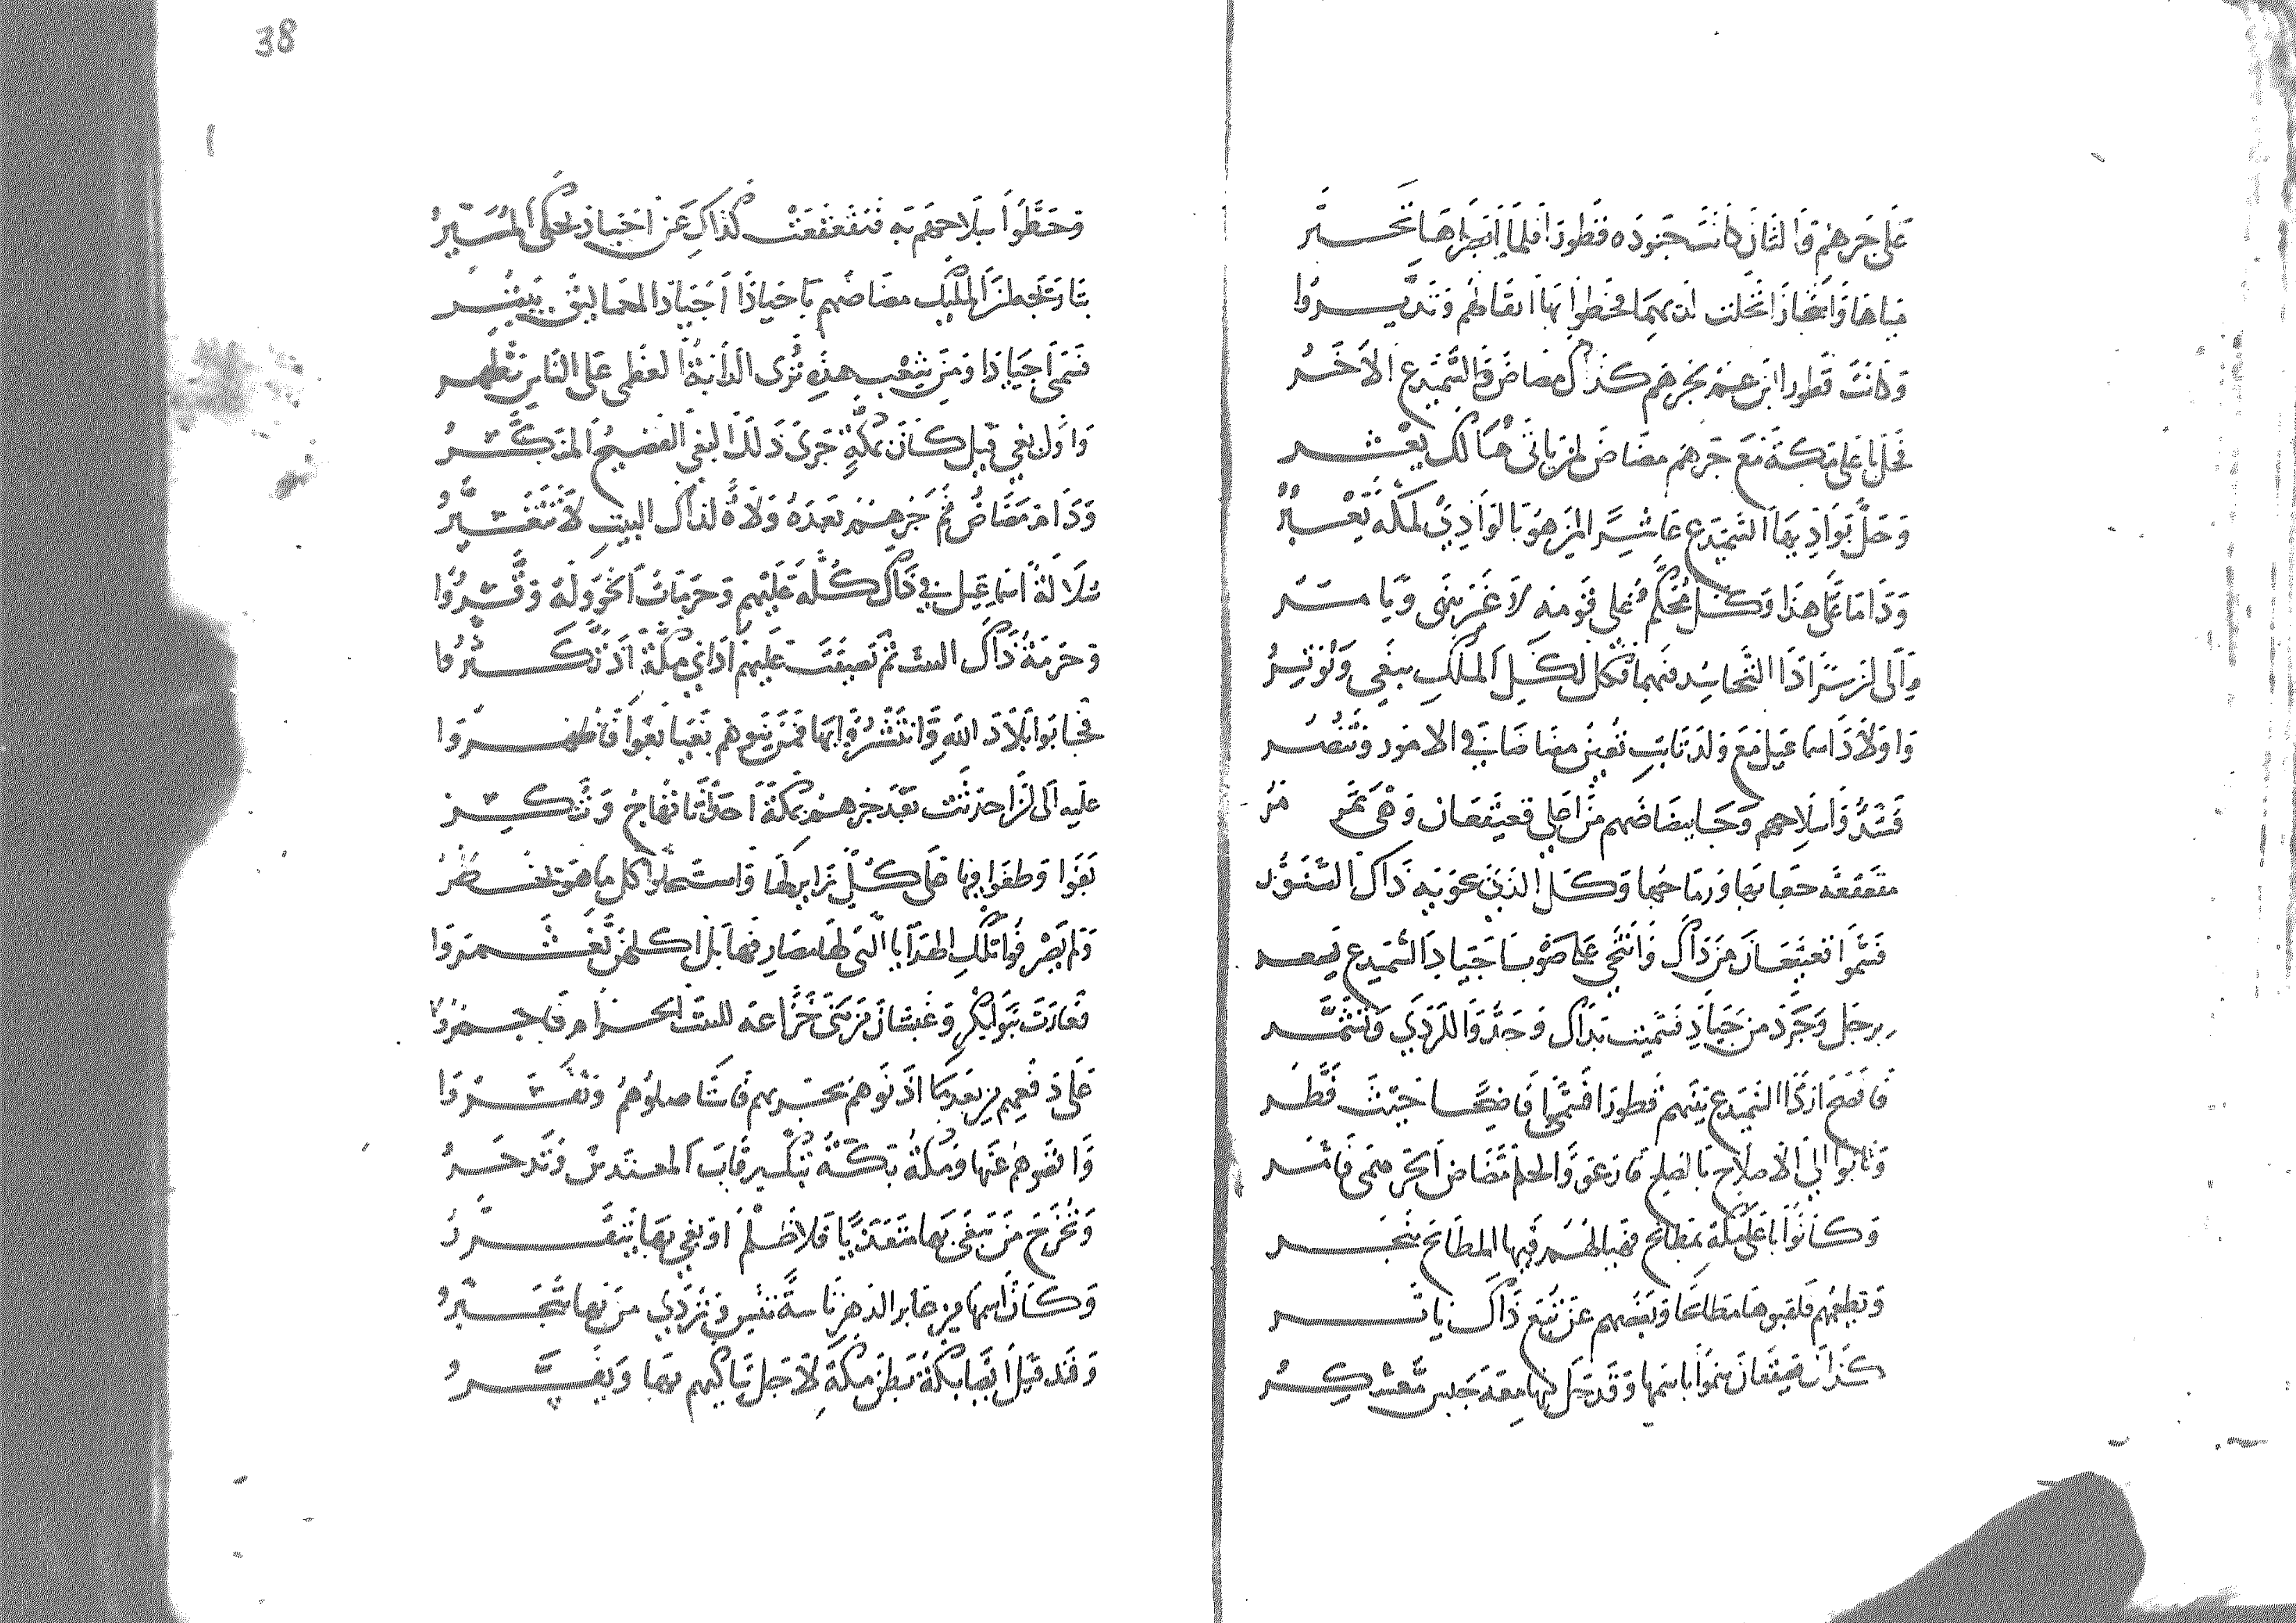 على جرهم والثان كانت جنوده قطورا فلما أبصراها تخـــير
مباهاة وانحازا نخلت لديهما فحطوا بها اثقالهم وتديـــروا
وكانت قطورا ابن عم بجرهم كذاك مضاض والسميدع الاخـــر
فحل باعلى مكة مع جرهم مضاض لمن ياتى هنالك يعشـــر
وحل بواديها السميدع عاشرا لمن هو بالوادي لمكة يعـــبر
وداما على هذا وكل محكم على قومه لا غزبينى ويا ســـر
الى ان سرا داء التحاسد فيهما فكل لكل الملك يبغي ويوتـــر
واولاد اسماعيل مع ولد نابت تعين مضاضا في الامور وتنصـــر
فشدوا سلاحهم وجا مضاضهم من اعلى قعيقعان وهي تمر مر
متقعقعه جعابها ورماحها وكل الذين عوبه ذاك الشور
فسموا قعيقعان من ذاك وانتحى على صوب اجياد السميدع يسعـــر
برجل وجرد من جياد فسميت بذاك وجدوا للردي وتشمـــر
فافضح اذ ذا السميدع بينهم قطورا فسمى فاضحا حيث قطـــر
وثابوا الى الاصلاح بالصلح فارعووا لحلم مضاض الجرهمى فاثمـــر
وكانوا باعلى مكة بمطابخ فهيا لهم فيها المطابخ ينحـــر
وتطعمهم فلقبوها مطابخا وبعضهم عن تبع ذاك ياثـــر
كذاك قعيقعان سموا باسمها وقد حل فيها معه جيش معسكـــر
38
وحطوا سلاحهم به فتقعقعت كذاك عن اجياد يحكى المسير
بتاريخه طر المليك مضاضهم باجيادا اجياد العماليق يبتـــر
فسمى اجيادا ومن شعب هذه ترى الدابة العظمى على الناس تظهـــر
واول بغي قيل كان بمكة جرى ذلك البغي الفضيح المذكـــر
ودام مضاض ثم جرهم بعده ولاة لذاك البيت لا تتغـــير
سلالة اسماعيل في ذاك كله عليهم وحرمات الخوولة وقـــروا
وحرمة ذاك البيت ثم تضيقت عليهم اذا في مكة اذ تكـــثروا
فجابوا بلاد الله وانتشروا بها فمن ينوهم بغيا بغوا فاظهـــروا
عليه الى ان احدثت بعد جرهم بمكة احداثا تفاح وتكـــر
بغوا وطغوا فيها على كل زاير لها واستحلوا كل ما هو يخـــطر
ولم يصرفوا تلك الهدايا التى لها مصارفها بل اكلهن تغشـــمروا
فغارت بنو بكر وغبشان من بنى خزاعة للبيت الحـــرام فاجمـــروا
على دفعهم من بعد ما اذنوهم بحربهم فاستاصلوهم ونفـــروا
وانفوهم عنها ومكة بكة تبك رقاب المعتدين وتدحـــر
وتخرج من يبغى بها متعديا فلا ظلم او بغي بها يتقـــرر
وكان اسمها من غابر الدهر ناسة تنس وتردي من بها يتجـــبر
وقد قيل ايضا بكة بطن مكة لاجل تباكيهم بها ويفســـر